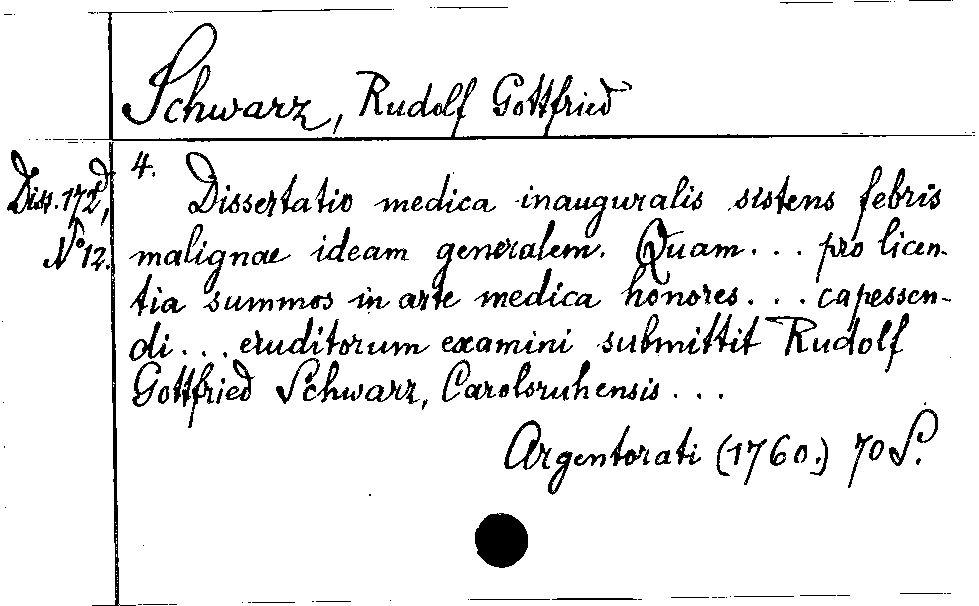 Schwarz, Rudolf Gottfried
Diss. 172d,
No 12.
4. Dissertatio medica inauguralis sistens febris
malignae ideam generalem. Quam... pro licen-
tia summos in arte medica honores... capessen-
di... eruditorum examini submittit Rudolf
Gottfried Schwarz, Carolsruhensis...
Argentorati (1760.) 70 S.